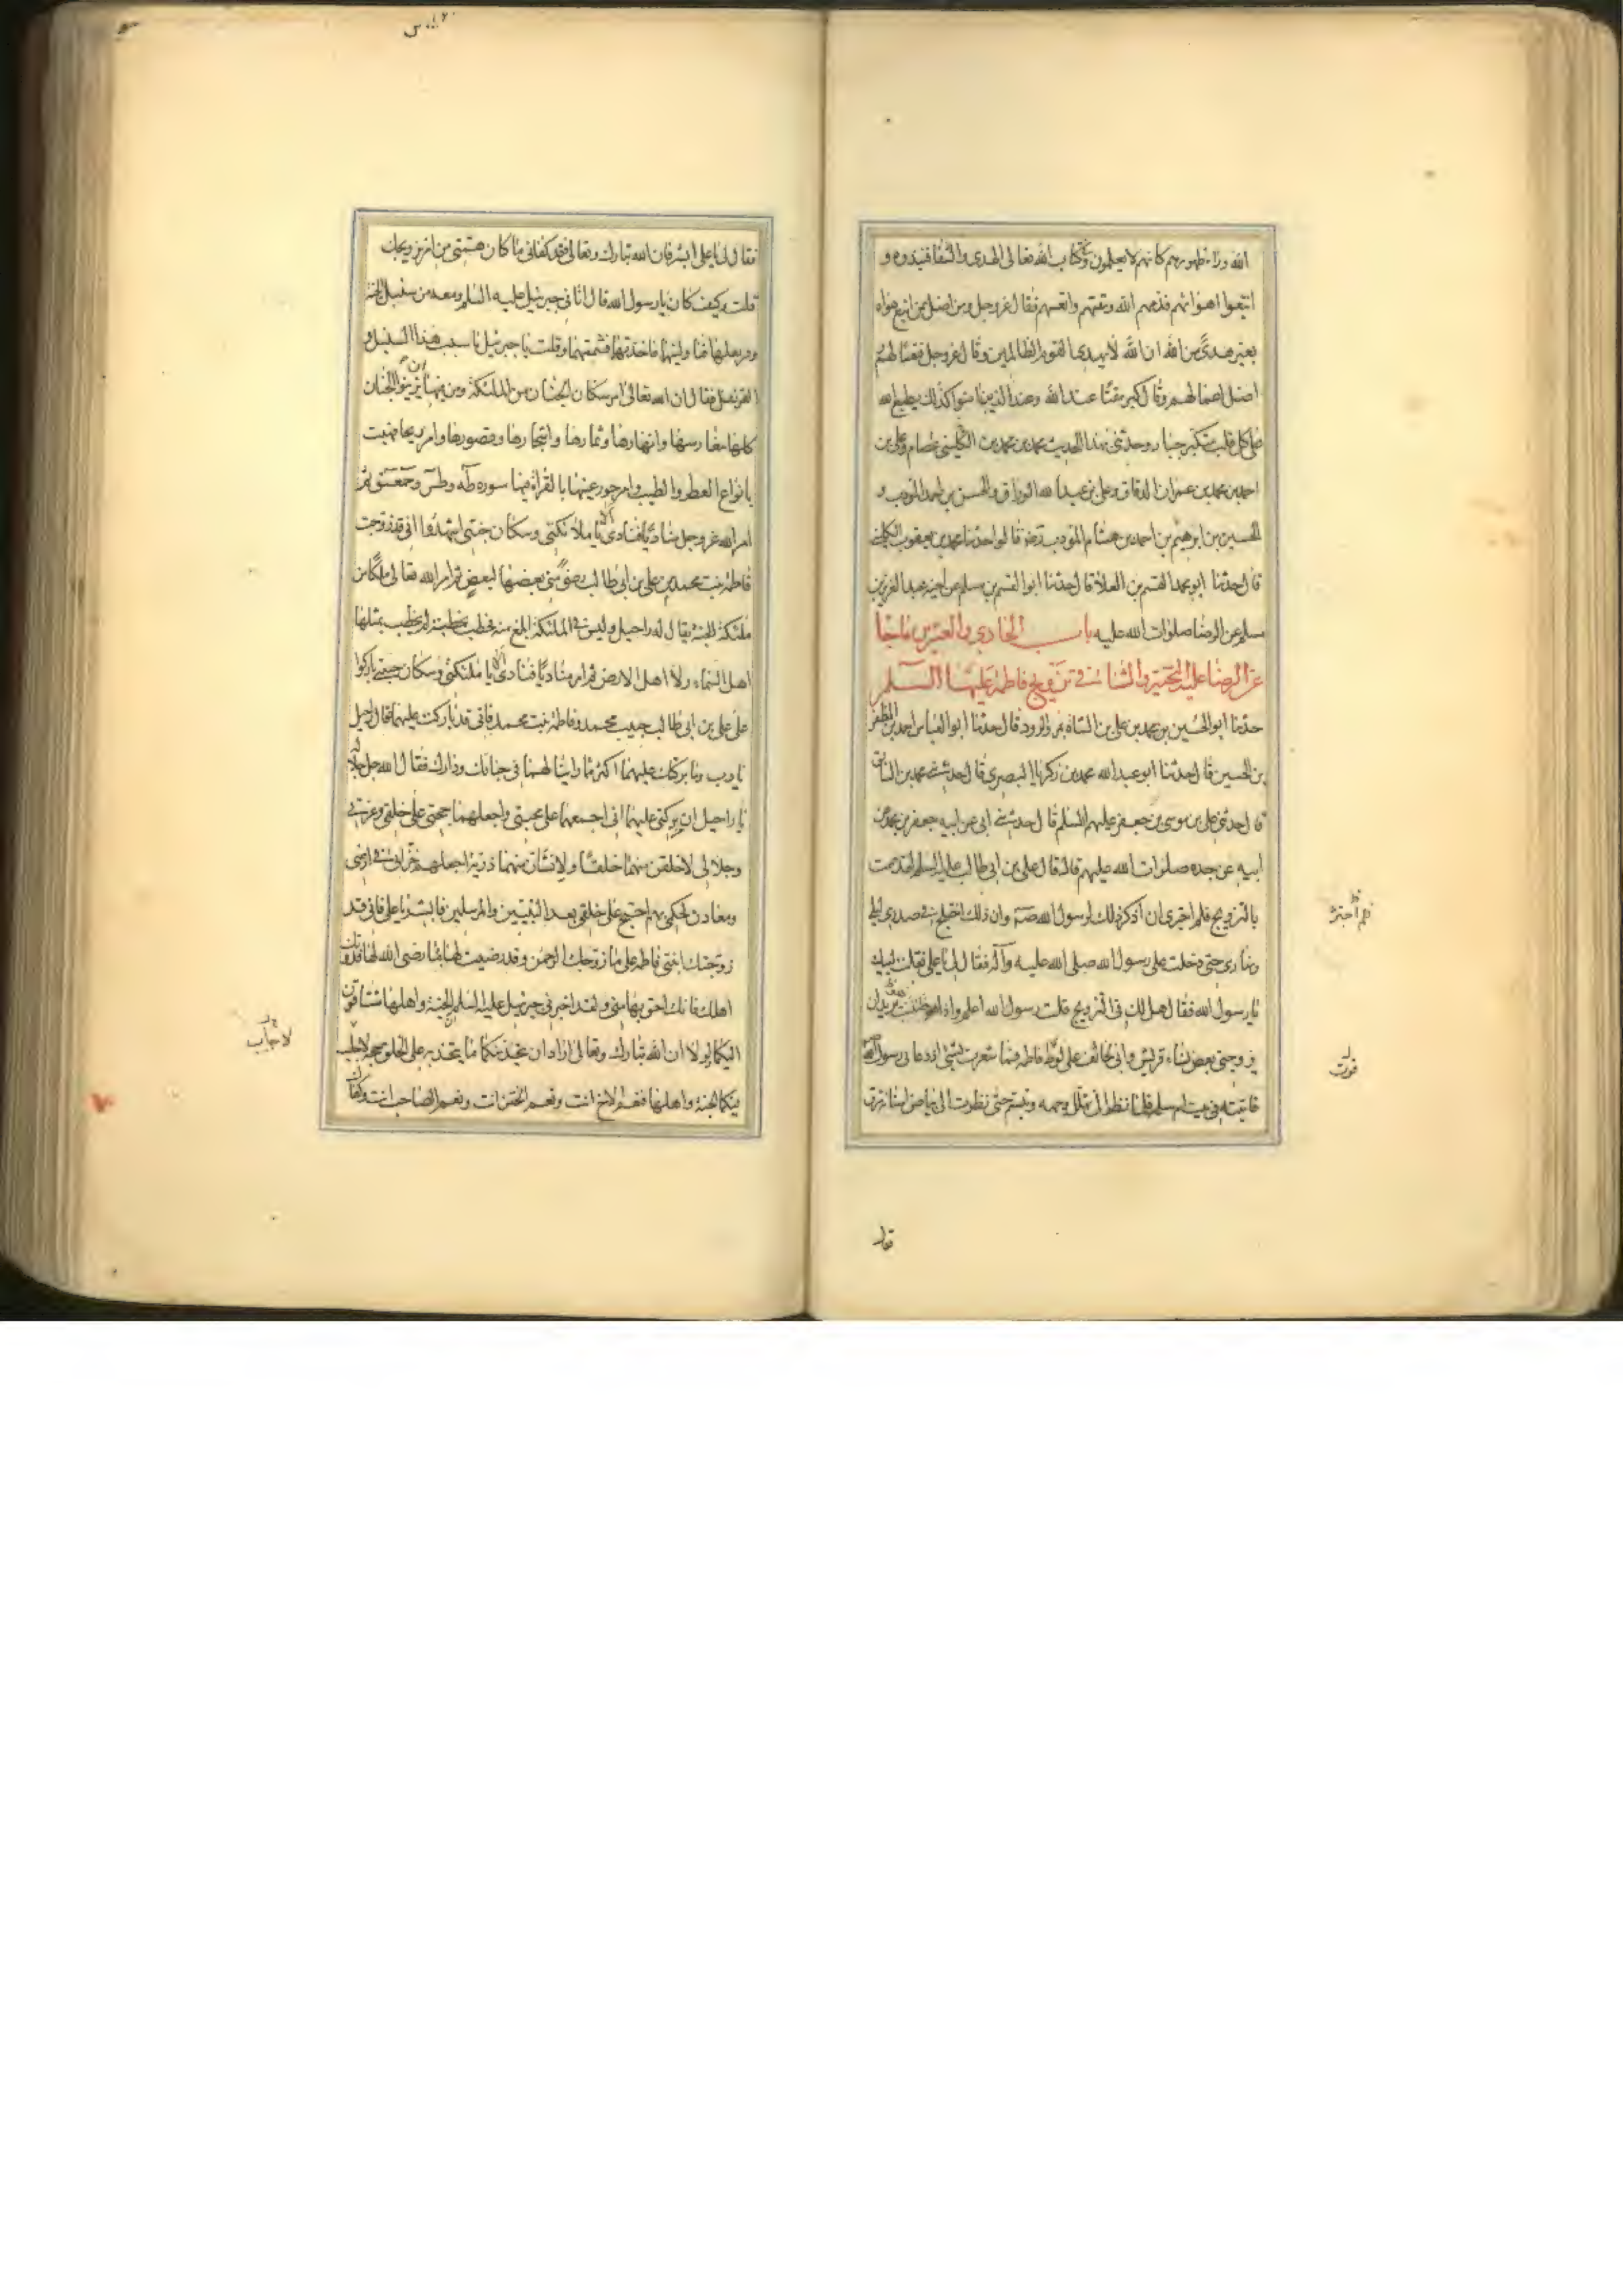 الله وراء ظهورهم كانهم لا يعلمون وفي كتاب الله تعالى الهدى والشفا فنبذوه و
اتبعوا اهوائهم فذمهم الله ومقتهم واتعسهم فقال عز وجل ومن اضل ممن اتبع هواه
بغير هدى من الله ان الله لا يهدى القوم الظالمين وقال عز وجل فتعسا لهم
اضل اعمالهم وقال كبر مقتا عند الله وعند الذين امنوا كذلك يطبع الله
على كل قلب متكبر جبار وحدثنى بهذا الحديث محمد بن محمد بن الكلينى عصام وعلى بن
احمد بن محمد بن عمران الدقاق وعلى بن عبد الله الوراق والحسن بن احمد المؤدب و
الحسين بن ابرهيم بن احمد بن هشام المؤدب رضه قالوا حدثنا محمد بن يعقوب الكلينى
قال حدثنا ابو محمد القسم بن العلا قال حدثنا ابو القسم بن مسلم عن اخيه عبد العزيز بن
مسلم عن الرضا صلوات الله عليه باب الحادى والعشرين ما جا
عن الرضا عليه التحية والثنا فى تزويج فاطمة عليها السلم
حدثنا ابو الحسين بن محمد بن على بن الشاه بمرو الرود قال حدثنا ابو العباس احمد بن المظفر
بن الحسين قال حدثنا ابو عبد الله محمد بن زكريا البصرى قال حدثنى محمد بن السابق
قال حدثنى على بن موسى بن جعفر عليهم السلم قال حدثنى ابى عن ابيه جعفر بن محمد عن
ابيه عن جده صلوات الله عليهم قال قال على بن ابى طالب عليه السلم لقد هممت
بالتزويج فلم اجترى ان اذكر ذلك لرسول الله صم وان ذلك اختلج فى صدرى ليلى
ونهارى حتى دخلت على رسول الله صلى الله عليه وآله فقال لى يا على فقلت لبيك
يا رسول الله فقال هل لك فى التزويج قلت رسول الله اعلم واذا هو يريد ان
يزوجنى بعض نساء قريش وانى لخائف على فوت فاطمه فما شعرت بشئ اذ دعانى رسول الله
فاتيته فى بيت ام سلمه فلما نظر الى تهلل وجهه وتبسم حتى نظرت الى بياض اسنانه تبرق
فلم اجترئ
فوت
فقال
فقال لى يا على ابشر فان الله تبارك وتعالى قد كفانى ما كان همنى من امر تزويجك
قلت وكيف كان يا رسول الله قال اتانى جبرئيل عليه السلم ومعه من سنبل الجنة
وقرنفلها فناولنيها فاخذتها فشممتها وقلت يا جبرئيل ما سبب هذا السنبل و
القرنفل فقال ان الله تعالى امر سكان الجنان من الملئكة ومن فيها ان يزينوا الجنان
كلها بمغارسها وانهارها وثمارها واشجارها وقصورها وامر ريحها فهبت
بانواع العطر والطيب وامر حور عينها بالقراة فيها سوره طه وطس وحمعسق ثم
امر الله عز وجل مناديا فنادى الا يا ملائكتى وسكان جنتى اشهدوا انى قد زوجت
فاطمة بنت محمد من على بن ابى طالب رضى منى بعضها لبعض ثم امر الله تعالى ملكا من
ملئكة الجنة يقال له راحيل وليس فى الملئكة ابلغ منه فخطب بخطبة لم يخطب بمثلها
اهل السماء ولا اهل الارض ثم امر مناديا فنادى الا يا ملئكتى وسكان جنتى باركوا
على على بن ابى طالب حبيب محمد وفاطمة بنت محمد فانى قد باركت عليهما قال راحيل
يا رب وما بركتك عليهما اكثر مما راينا لهما فى جنانك ودارك فقال الله جل جلاله
يا راحيل ان بركتى عليهما انى اجمعهما على محبتى واجعلهما حجتى على خلقى وعزتى
وجلالى لاخلقن منهما خلقا ولانشان منهما ذرية اجعلهم خزانى فى ارضى
ومعادن لحكمى بهم احتج على خلقى بعد النبيين والمرسلين فابشر يا على فانى قد
زوجتك ابنتى فاطمه على ما زوجك الرحمن وقد رضيت لها بما رضى الله لها فدونك
اهلك فانك احق بها منى ولقد اخبرنى جبرئيل عليه السلم ان الجنة واهلها مشتاقون
اليكما ولولا ان الله تبارك وتعالى اراد ان يتخذ منكما ما يتخذ به على الخلق حجة لاجاب
فيكما الجنة واهلها فنعم الاخ انت ونعم الختن انت ونعم الصاحب انت وكفاك
لاجاب